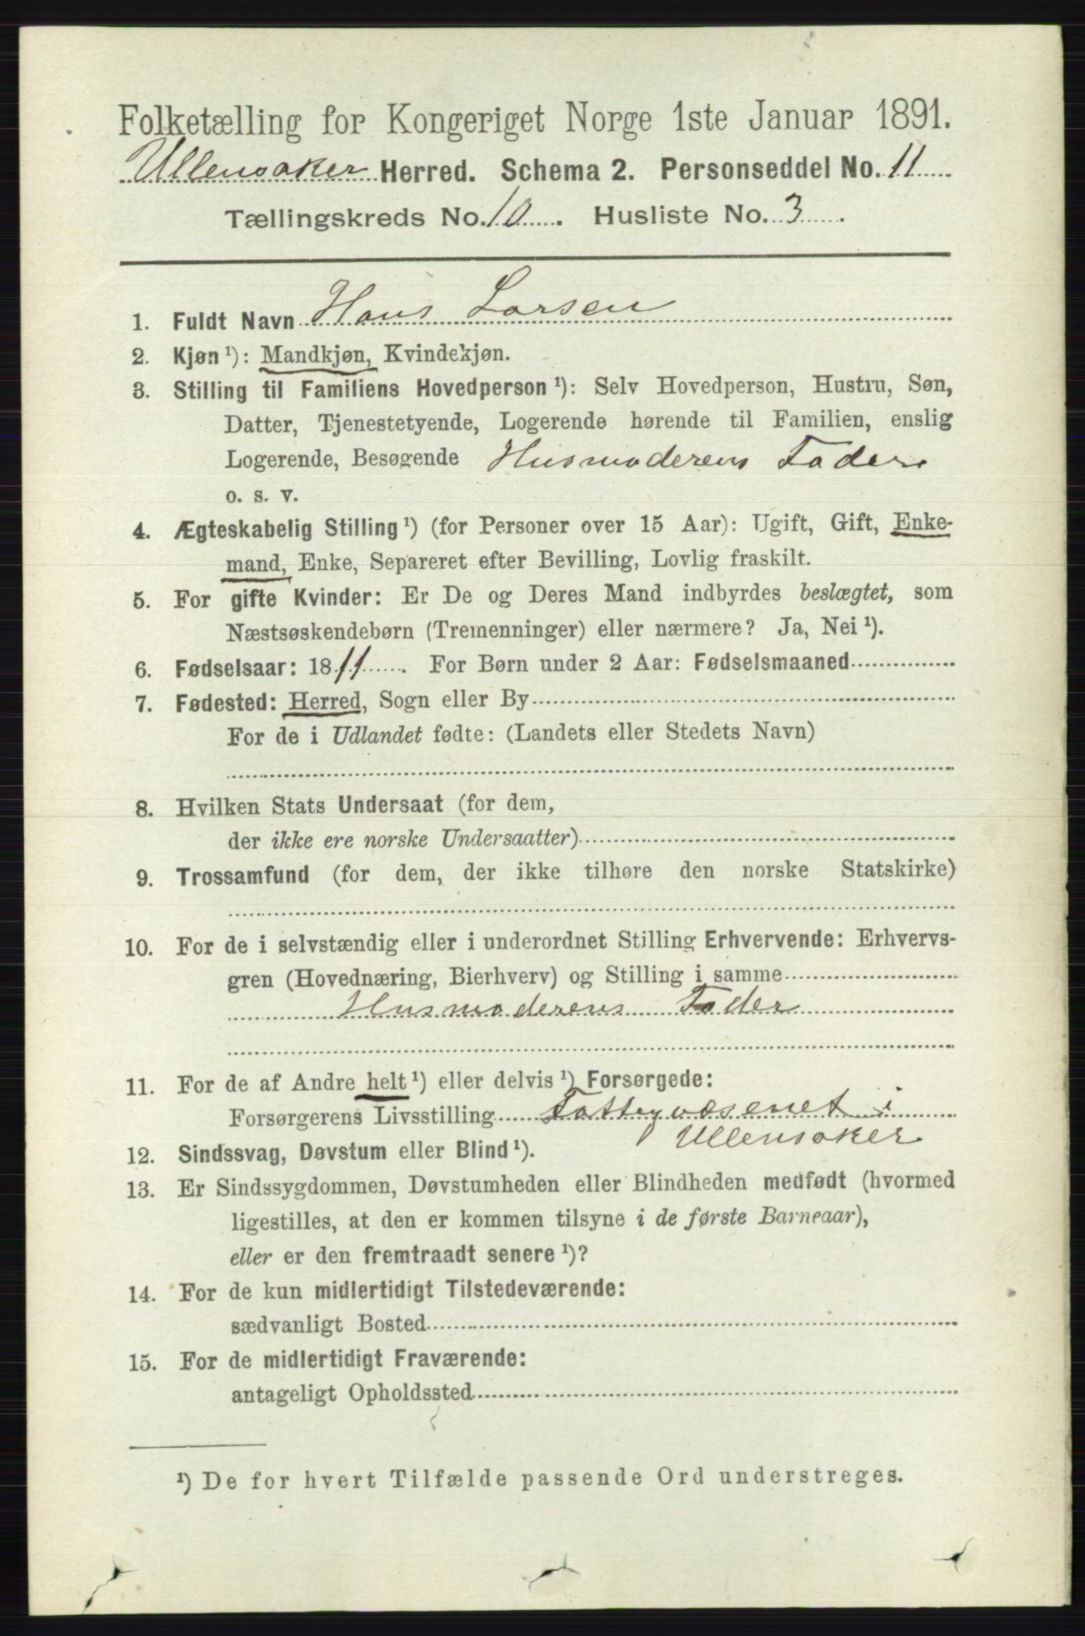 Folketælling for Kongeriget Norge 1ste Januar 1891.
Ullensaker Herred. Schema 2. Personseddel No. 11
Tællingskreds No. 10. Husliste No. 3.
1. Fuldt Navn Hans Larsen
2. Kjøn ¹): Mandkjøn, Kvindekjøn.
3. Stilling til Familiens Hovedperson ¹): Selv Hovedperson, Hustru, Søn,
Datter, Tjenestetyende, Logerende hørende til Familien, enslig
Logerende, Besøgende Husmoderens Fader
o. s. v.
4. Ægteskabelig Stilling ¹) (for Personer over 15 Aar): Ugift, Gift, Enke-
mand, Enke, Separeret efter Bevilling, Lovlig fraskilt.
5. For gifte Kvinder: Er De og Deres Mand indbyrdes beslægtet, som
Næstsøskendebørn (Tremenninger) eller nærmere? Ja, Nei ¹).
6. Fødselsaar: 1811. For Børn under 2 Aar: Fødselsmaaned
7. Fødested: Herred, Sogn eller By
For de i Udlandet fødte: (Landets eller Stedets Navn)
8. Hvilken Stats Undersaat (for dem,
der ikke ere norske Undersaatter)
9. Trossamfund (for dem, der ikke tilhøre den norske Statskirke)
10. For de i selvstændig eller i underordnet Stilling Erhvervende: Erhvervs-
gren (Hovednæring, Bierhverv) og Stilling i samme
Husmoderens Fader
11. For de af Andre helt ¹) eller delvis ¹) Forsørgede:
Forsørgerens Livsstilling Fattigvæsenet i
Ullensaker
12. Sindssvag, Døvstum eller Blind ¹).
13. Er Sindssygdommen, Døvstumheden eller Blindheden medfødt (hvormed
ligestilles, at den er kommen tilsyne i de første Barneaar),
eller er den fremtraadt senere ¹)?
14. For de kun midlertidigt Tilstedeværende:
sædvanligt Bosted
15. For de midlertidigt Fraværende:
antageligt Opholdssted
¹) De for hvert Tilfælde passende Ord understreges.